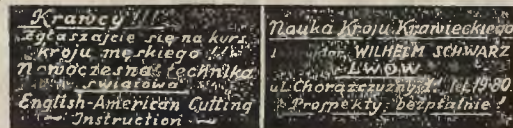 Krawcy !!!
zgłaszajcie się na kurs
kroju męskiego !!!
Nowoczesna technika
światowa
English-American Cutting
Instruction
Nauka Kroju Krawieckiego
WILHELM SCHWARZ
LWÓW
ul. Chorążczyzny tel. 19-80
Prospekty bezpłatnie !